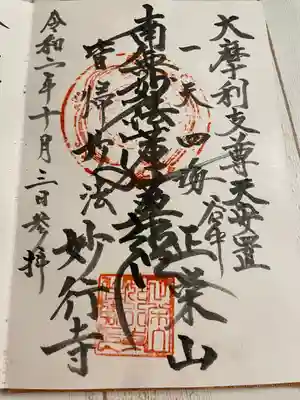 大摩利支尊天安置
谷中
正栄山
一天四海
南無妙法蓮華経
皆帰妙法
妙行寺
令和二年十月三日参拝